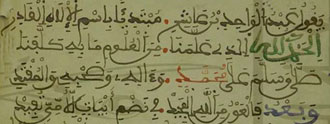 يقول عبد الواحد بن عاشر مبتدئا باسم الإله القادر
الحمد لله الذي علمنا من العلوم ما به كلفنا
صلى وسلم على محمد وآله وصحبه والمقتدي
وبعد فالعون من الله المجيد في نظم أبيات للأمي تفيد